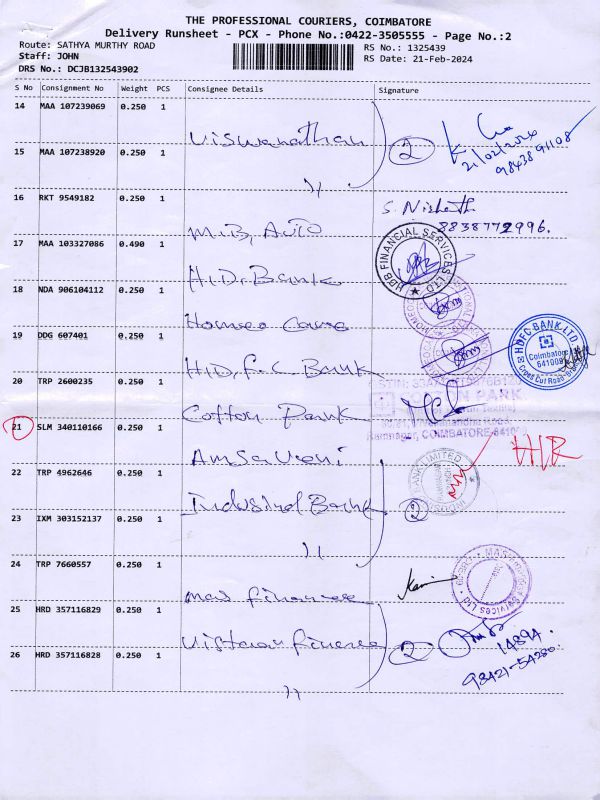 THE PROFESSIONAL COURIERS, COIMBATORE
Delivery Runsheet - PCX - Phone No.:0422-3505555 - Page No.:2
Route: SATHYA MURTHY ROAD
RS No.: 1325439
Staff: JOHN
RS Date: 21-Feb-2024
DRS No.: DCJB132543902
S No Consignment No Weight PCS Consignee Details Signature
14 MAA 107239069 0.250 1
Viswanathan 2
21/02/2024
98438 91108
15 MAA 107238920 0.250 1
16 RKT 9549182 0.250 1
M.B, Auto
S. Nishanth
8838772996.
17 MAA 103327086 0.490 1
H.D. Bank
HDB FINANCIAL SERVICES LTD
18 NDA 906104112 0.250 1
Homeo Care
19 DDG 607401 0.250 1
H.D.F.C. Bank
HDFC BANK LTD
Coimbatore
Cross Cut Road
20 TRP 2600235 0.250 1
Cotton Park
Ramnagar, COIMBATORE
21 SLM 340110166 0.250 1
22 TRP 4962646 0.250 1
Bank 2
BANK LIMITED
23 IXM 303152137 0.250 1
24 TRP 7660557 0.250 1
mas finance
Services Ltd
25 HRD 357116829 0.250 1
finance 2
14894
98421-54280
26 HRD 357116828 0.250 1